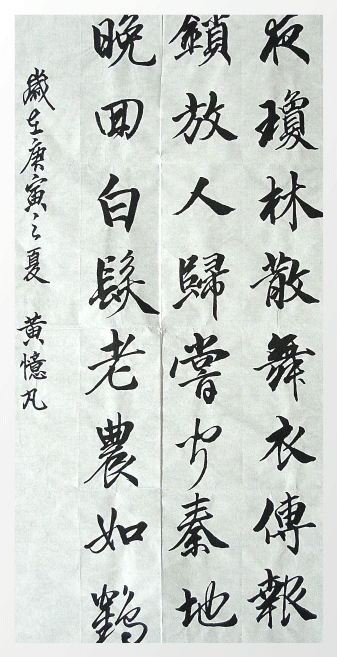 夜瓊林散舞衣傳報
鎖放人歸嘗聞秦地
晚回白髮老農如鶴
歲在庚寅之夏 黃憶凡